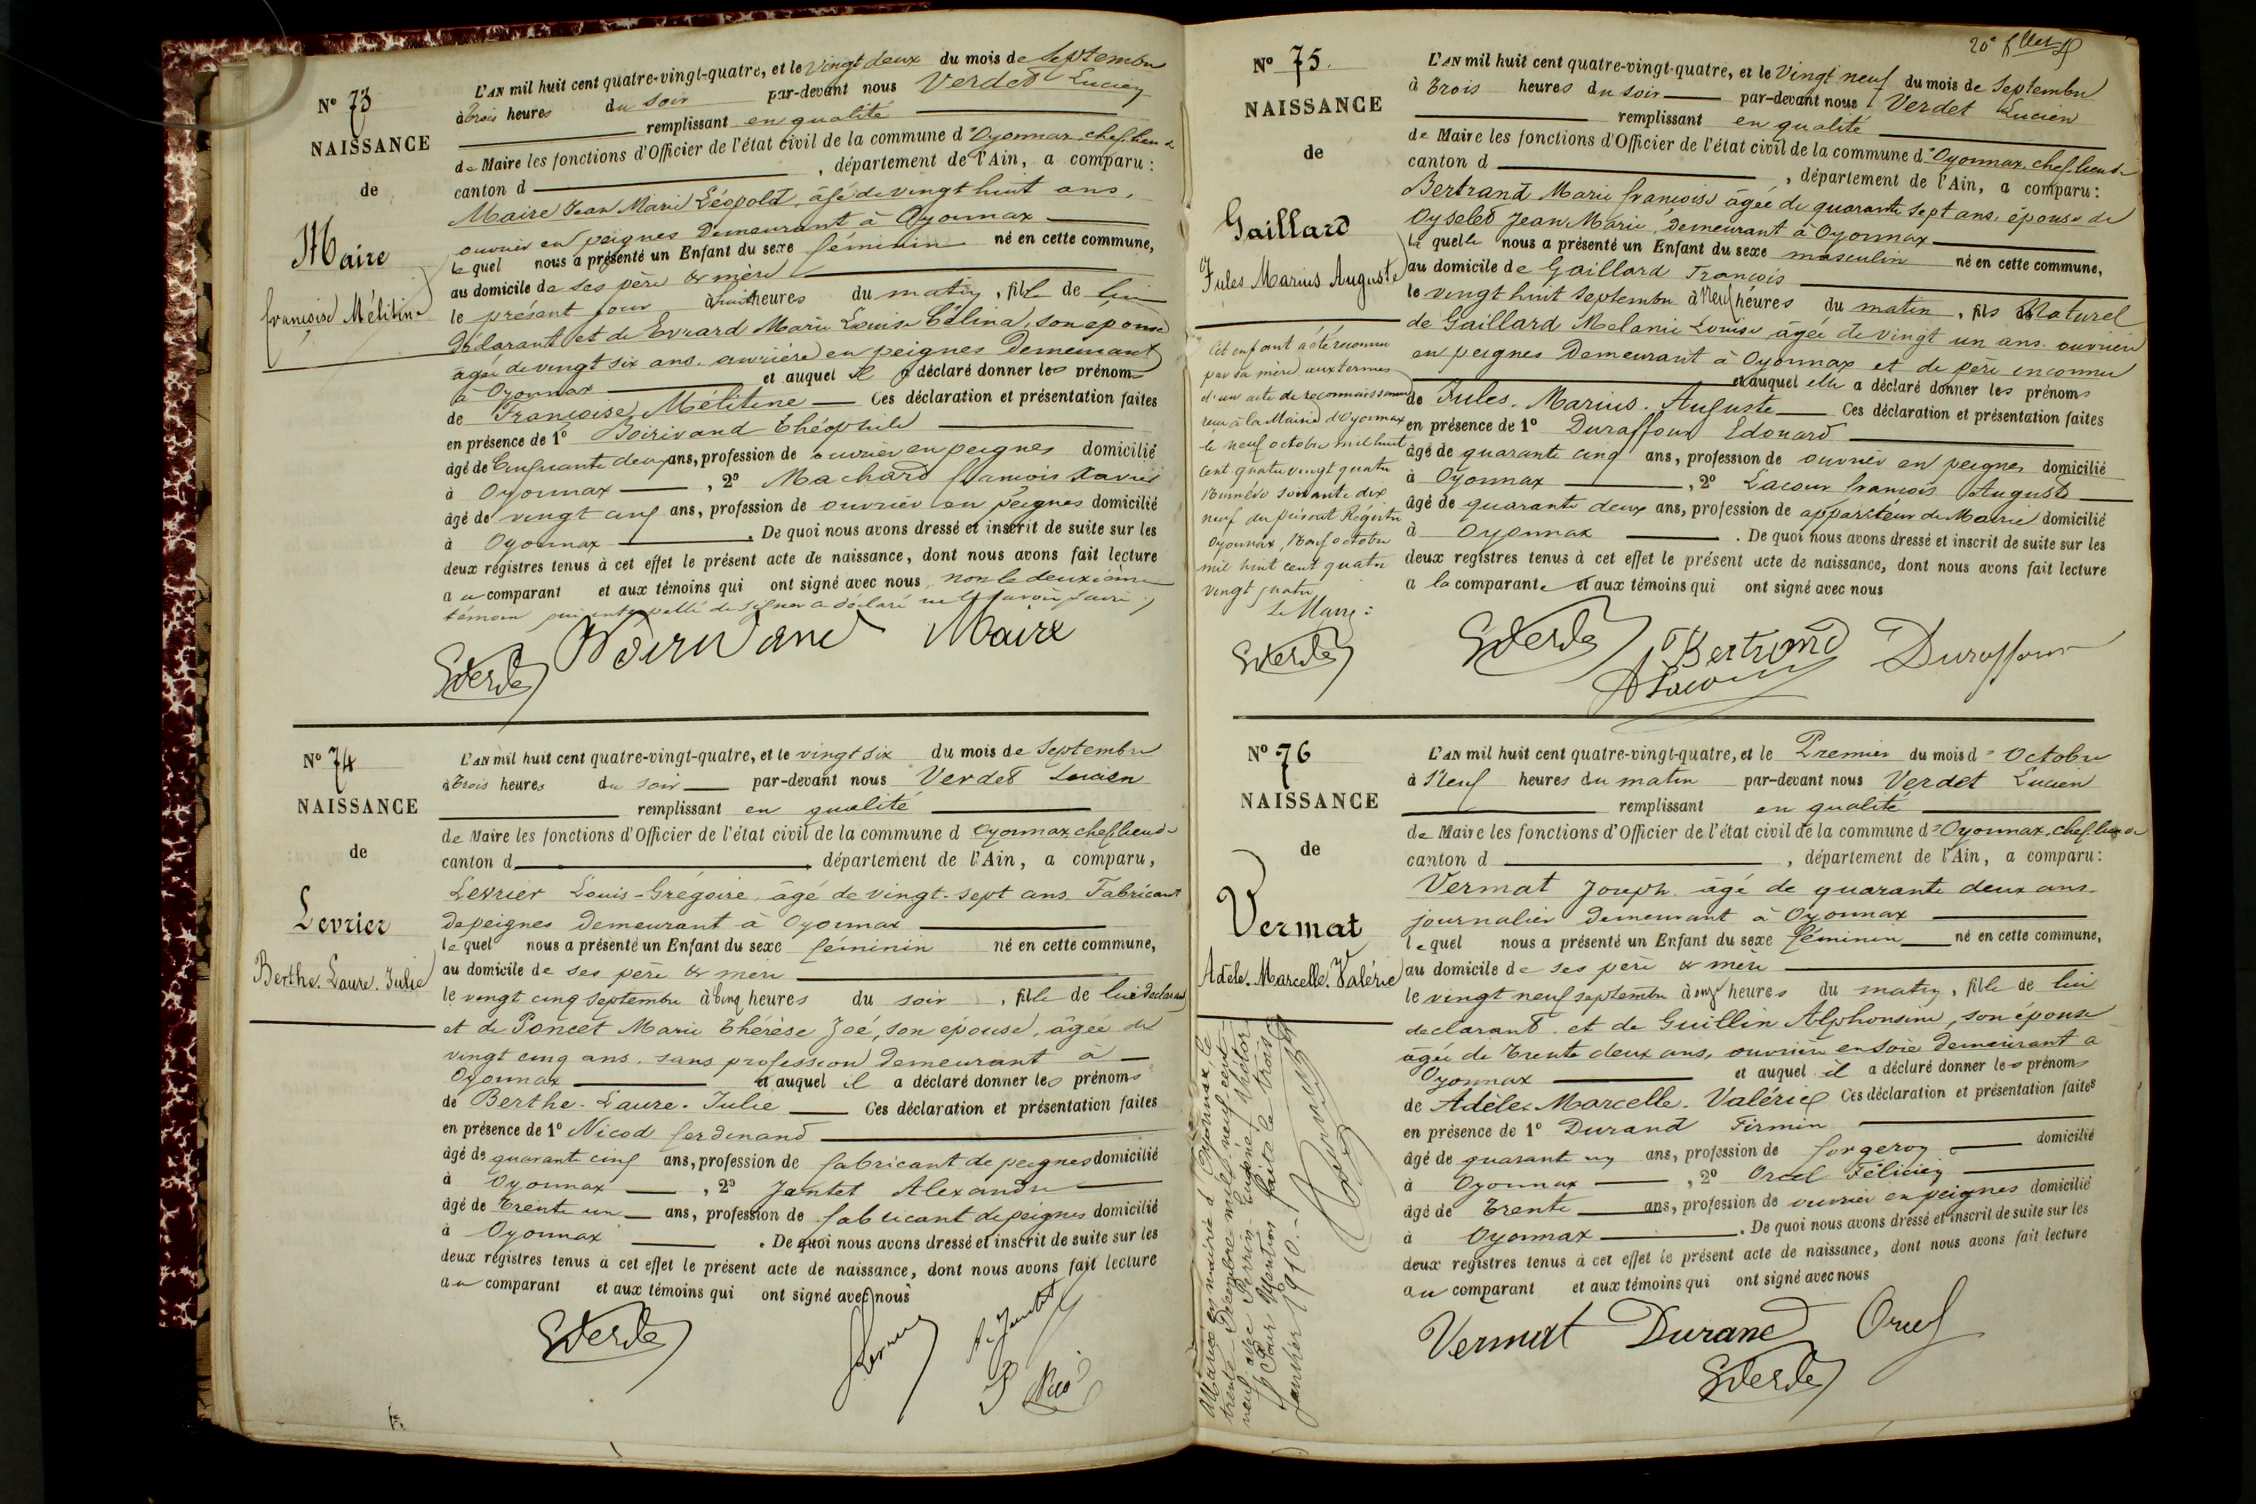 N° 73
NAISSANCE
de
Maire
Françoise Mélitine
L'AN mil huit cent quatre-vingt-quatre, et le vingt deux du mois de Septembre
à trois heures du soir par-devant nous Verdet Lucien
remplissant en qualité
de Maire les fonctions d'Officier de l'état civil de la commune d'Oyonnax chef lieu de
canton d , département de l'Ain, a comparu :
Maire Jean Marie Léopold, âgé de vingt huit ans,
ouvrier en peignes demeurant à Oyonnax
lequel nous a présenté un Enfant du sexe féminin né en cette commune,
au domicile de ses père & mère
le présent jour à huit heures du matin, fille de lui
déclarant et de Evrard Marie Louise Célina, son épouse
âgée de vingt six ans, ouvrière en peignes demeurant
à Oyonnax et auquel il a déclaré donner les prénoms
de Françoise Mélitine Ces déclaration et présentation faites
en présence de 1° Boirivand Théophile
âgé de Cinquante deux ans, profession de ouvrier en peignes domicilié
à Oyonnax , 2° Machard françois Xavier
âgé de vingt cinq ans, profession de ouvrier en peignes domicilié
à Oyonnax . De quoi nous avons dressé et inscrit de suite sur les
deux registres tenus à cet effet le présent acte de naissance, dont nous avons fait lecture
au comparant et aux témoins qui ont signé avec nous non le deuxième
témoin qui interpellé de signer a déclaré ne le savoir faire
Verdet Boirivand Maire
N° 74
NAISSANCE
de
Levrier
Berthe. Laure. Julie
L'AN mil huit cent quatre-vingt-quatre, et le vingt six du mois de Septembre
à trois heures du soir par-devant nous Verdet Lucien
remplissant en qualité
de Maire les fonctions d'Officier de l'état civil de la commune d Oyonnax, chef lieu de
canton d , département de l'Ain, a comparu,
Levrier Louis-Grégoire, âgé de vingt-sept ans Fabricant
de peignes demeurant à Oyonnax
lequel nous a présenté un Enfant du sexe féminin né en cette commune,
au domicile de ses père & mère
le vingt cinq septembre à cinq heures du soir, fille de lui déclarant
et de Poncet Marie Thérèse Zoé, son épouse, âgée de
vingt cinq ans, sans profession demeurant à
Oyonnax et auquel il a déclaré donner les prénoms
de Berthe. Laure. Julie Ces déclaration et présentation faites
en présence de 1° Nicod ferdinand
âgé de quarante cinq ans, profession de fabricant de peignes domicilié
à Oyonnax , 2° Jantet Alexandre
âgé de trente un ans, profession de fabricant de peignes domicilié
à Oyonnax . De quoi nous avons dressé et inscrit de suite sur les
deux registres tenus à cet effet le présent acte de naissance, dont nous avons fait lecture
au comparant et aux témoins qui ont signé avec nous
Verdet A. Jantet
20e
N° 75.
NAISSANCE
de
Gaillard
Jules Marius Auguste
Cet enfant a été reconnu
par sa mère aux termes
d'un acte de reconnaissance
reçu à la Mairie d'Oyonnax
le neuf octobre mil huit
cent quatre vingt quatre
Numéro soixante dix
neuf du présent Régistre
Oyonnax, Neuf octobre
mil huit cent quatre
vingt quatre
Le Maire :
Verdet
L'AN mil huit cent quatre-vingt-quatre, et le Vingt neuf du mois de Septembre
à trois heures du soir par-devant nous Verdet Lucien
remplissant en qualité
de Maire les fonctions d'Officier de l'état civil de la commune d'Oyonnax, chef lieu de
canton d , département de l'Ain, a comparu :
Bertrand Marie françoise âgée de quarante sept ans, épouse de
Oyselet Jean Marie, demeurant à Oyonnax
laquelle nous a présenté un Enfant du sexe masculin né en cette commune,
au domicile de Gaillard François
le vingt huit septembre à Neuf heures du matin, fils Naturel
de Gaillard Melanie Louise âgée de vingt un ans ouvrière
en peignes Demeurant à Oyonnax et de père inconnu
et auquel elle a déclaré donner les prénoms
de Jules. Marius. Auguste Ces déclaration et présentation faites
en présence de 1° Duraffour Edouard
âgé de quarante cinq ans, profession de ouvrier en peignes domicilié
à Oyonnax , 2° Lacour françois Auguste
âgé de quarante deux ans, profession de appariteur de Mairie domicilié
à Oyonnax . De quoi nous avons dressé et inscrit de suite sur les
deux registres tenus à cet effet le présent acte de naissance, dont nous avons fait lecture
a la comparante et aux témoins qui ont signé avec nous
Verdet Bertrand Duraffour
A Lacour
N° 76
NAISSANCE
de
Vermat
Adèle. Marcelle. Valérie
Mariée en mairie d'Oyonnax, le
trente Décembre mil neuf cent
neuf avec Perrin Eugène Victor
Pour Mention faite le trois
Janvier 1910.
L'AN mil huit cent quatre-vingt-quatre, et le Premier du mois d'Octobre
à Neuf heures du matin par-devant nous Verdet Lucien
remplissant en qualité
de Maire les fonctions d'Officier de l'état civil de la commune d'Oyonnax, chef lieu de
canton d , département de l'Ain, a comparu :
Vermat Joseph âgé de quarante deux ans
journalier demeurant à Oyonnax
lequel nous a présenté un Enfant du sexe féminin né en cette commune,
au domicile de ses père & mère
le vingt neuf septembre à onze heures du matin, fille de lui
déclarant et de Guillin Alphonsine, son épouse
âgée de trente deux ans, ouvrière en soie demeurant à
Oyonnax et auquel il a déclaré donner les prénoms
de Adèle. Marcelle. Valérie Ces déclaration et présentation faites
en présence de 1° Durand Firmin
âgé de quarante un ans, profession de forgeron domicilié
à Oyonnax , 2° Orcel Félicien
âgé de trente ans, profession de ouvrier en peignes domicilié
à Oyonnax . De quoi nous avons dressé et inscrit de suite sur les
deux registres tenus à cet effet le présent acte de naissance, dont nous avons fait lecture
au comparant et aux témoins qui ont signé avec nous
Vermat Durand Orcel
Verdet